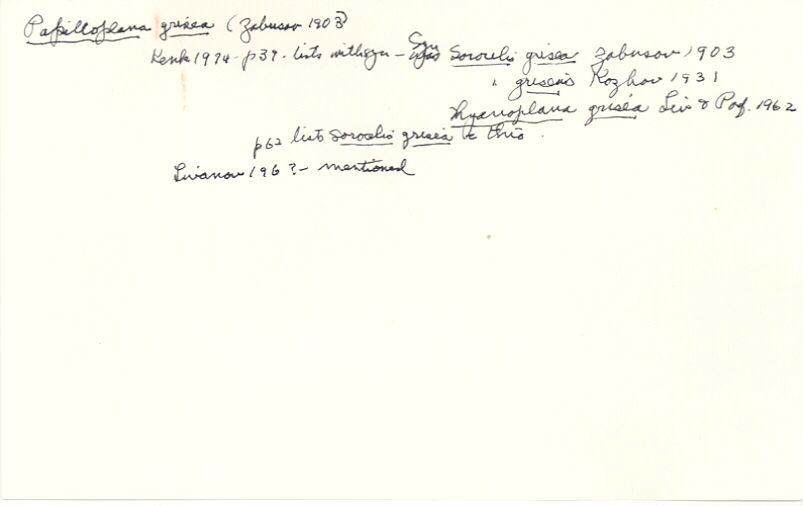 Papilloplana grisea (Zabusov 1903)
Kenk 1974 - p37 - lists with syn - Syn Sorocelis grisea Zabusov 1903
" griseas Kozhov 1931
Thysanoplana grisea Liv & Pof. 1962
p62 lists Sorocelis grisea to this.
Livanov 196? - mentioned